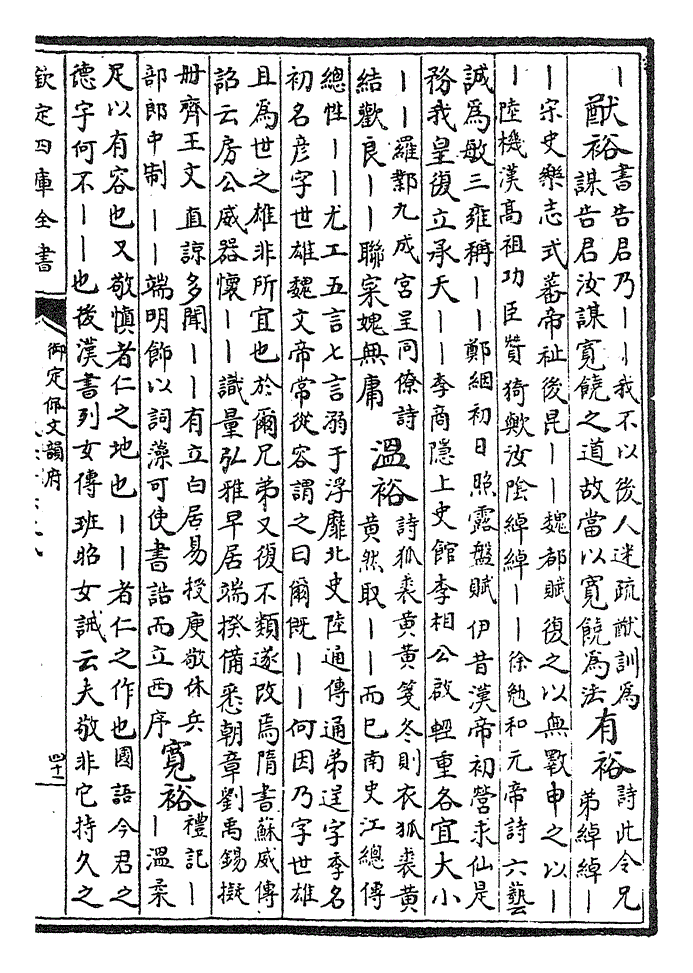 ｜
猷裕書告君乃｜｜我不以後人迷疏猷訓為
謀告君汝謀寬饒之道故當以寬饒為法有裕詩此令兄
弟綽綽｜
｜宋史樂志式蕃帝祉後昆｜｜魏都賦復之以無斁申之以｜
｜陸機漢高祖功臣贊猗歟汝陰綽綽｜｜徐勉和元帝詩六藝
誠為敏三雍稱｜｜鄭絪初日照露盤賦伊昔漢帝初營求仙是
務我皇復立承天｜｜李商隱上史館李相公啟輕重各宜大小
｜｜羅鄴九成宮呈同僚詩
結歡良｜｜聯寀媿無庸
溫裕詩狐裘黃黃箋冬則衣狐裘黃
黃然取｜｜而已南史江總傳
總性｜｜尤工五言七言溺于浮靡北史陸通傳通弟逞字季名
初名彥字世雄魏文帝常從容謂之曰爾既｜｜何因乃字世雄
且為世之雄非所宜也於爾兄弟又復不類遂改焉隋書蘇威傳
詔云房公威器懷｜｜識量弘雅早居端揆備悉朝章劉禹錫擬
冊齊王文直諒多聞｜｜有立白居易授庾敬休兵
部郎中制｜｜端明飾以詞藻可使書誥而立西序
寬裕禮記｜
｜溫柔
足以有容也又敬慎者仁之地也｜｜者仁之作也國語今君之
德宇何不｜｜也後漢書列女傳班昭女誡云夫敬非它持久之
欽定四庫全書
御定佩文韻府
四十一